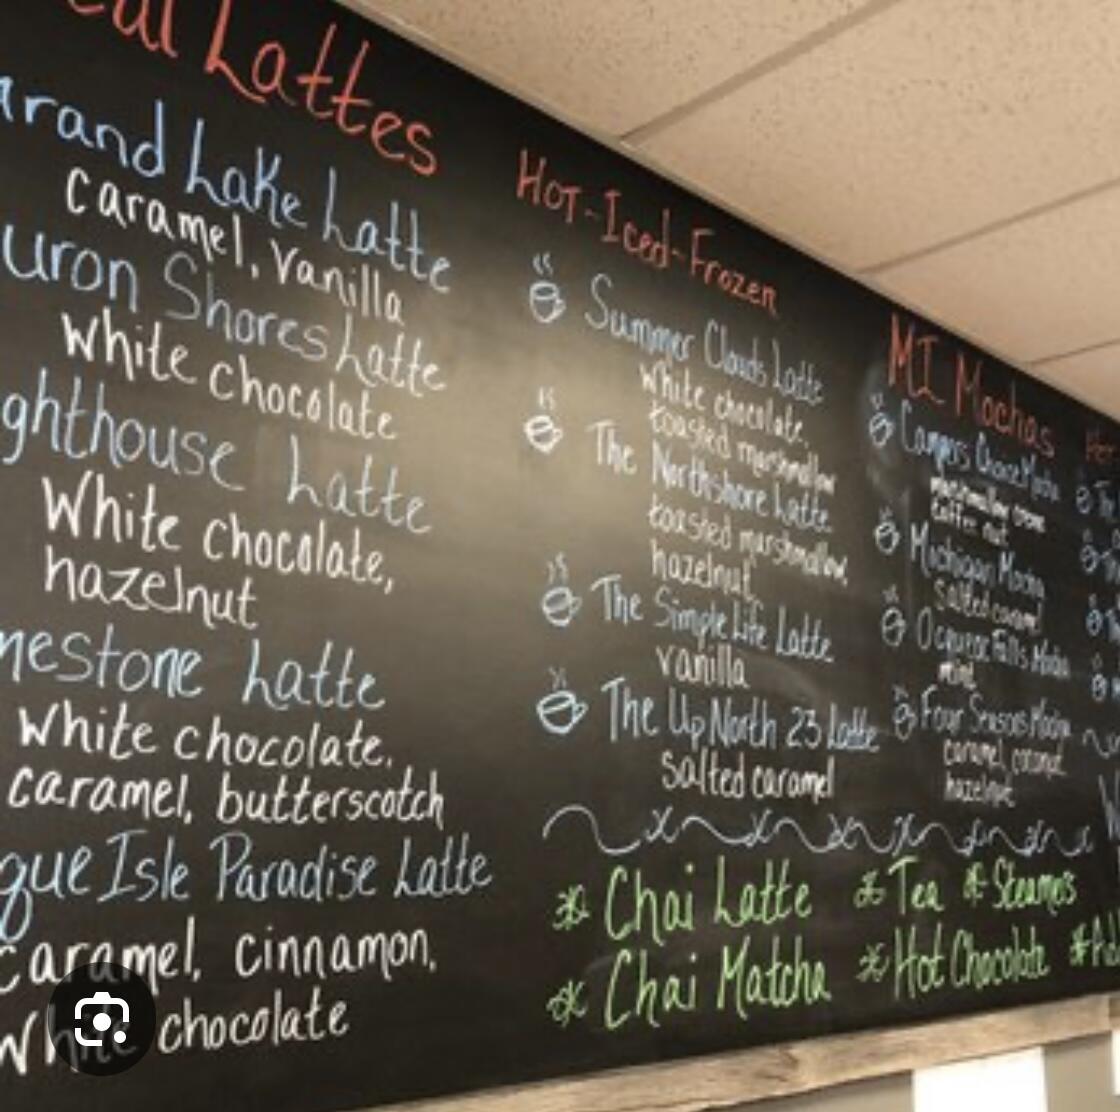 Lattes
Grand Lake Latte
caramel, vanilla
Huron Shores Latte
White chocolate
Lighthouse Latte
White chocolate,
hazelnut
Limestone Latte
White chocolate,
caramel, butterscotch
Presque Isle Paradise Latte
caramel, cinnamon,
White chocolate
Hot-Iced-Frozen
Summer Clouds Latte
White chocolate,
toasted marshmallow
The Northshore Latte
toasted marshmallow,
hazelnut
The Simple Life Latte
vanilla
The Up North 23 Latte
Salted caramel
MI Mochas
Campers Choice Mocha
marshmallow creme
coffee nut
Michigan Mocha
Salted caramel
Ocqueoc Falls Mocha
mint
Four Seasons Mocha
caramel, coconut,
hazelnut
* Chai Latte * Tea * Steamers
* Chai Matcha * Hot Chocolate